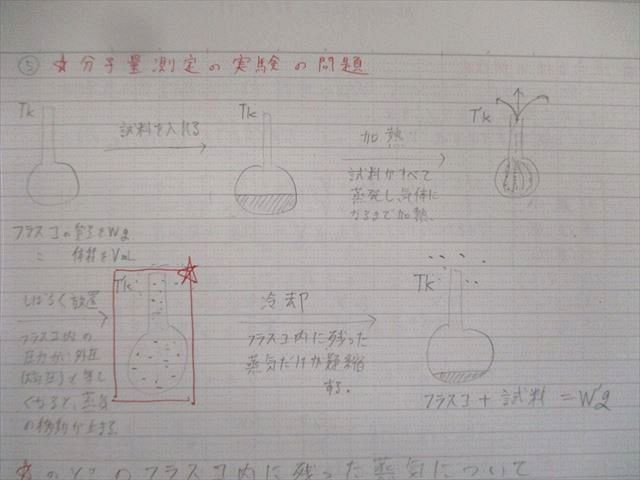 ⑤ ☆分子量測定の実験の問題
TK
試料を入れる
TK
加熱
試料がすべて
蒸発し気体に
なるまで加熱、
T'K
フラスコの重さをWg
〃 体積をVmL
しばらく放置
フラスコ内の
圧力が外圧
と等し
くなると、蒸気
の移動が止まる
T'K
☆
冷却
フラスコ内に残った
蒸気だけが凝縮
する。
TK
フラスコ+試料=W'g
☆のときのフラスコ内に残った蒸気について